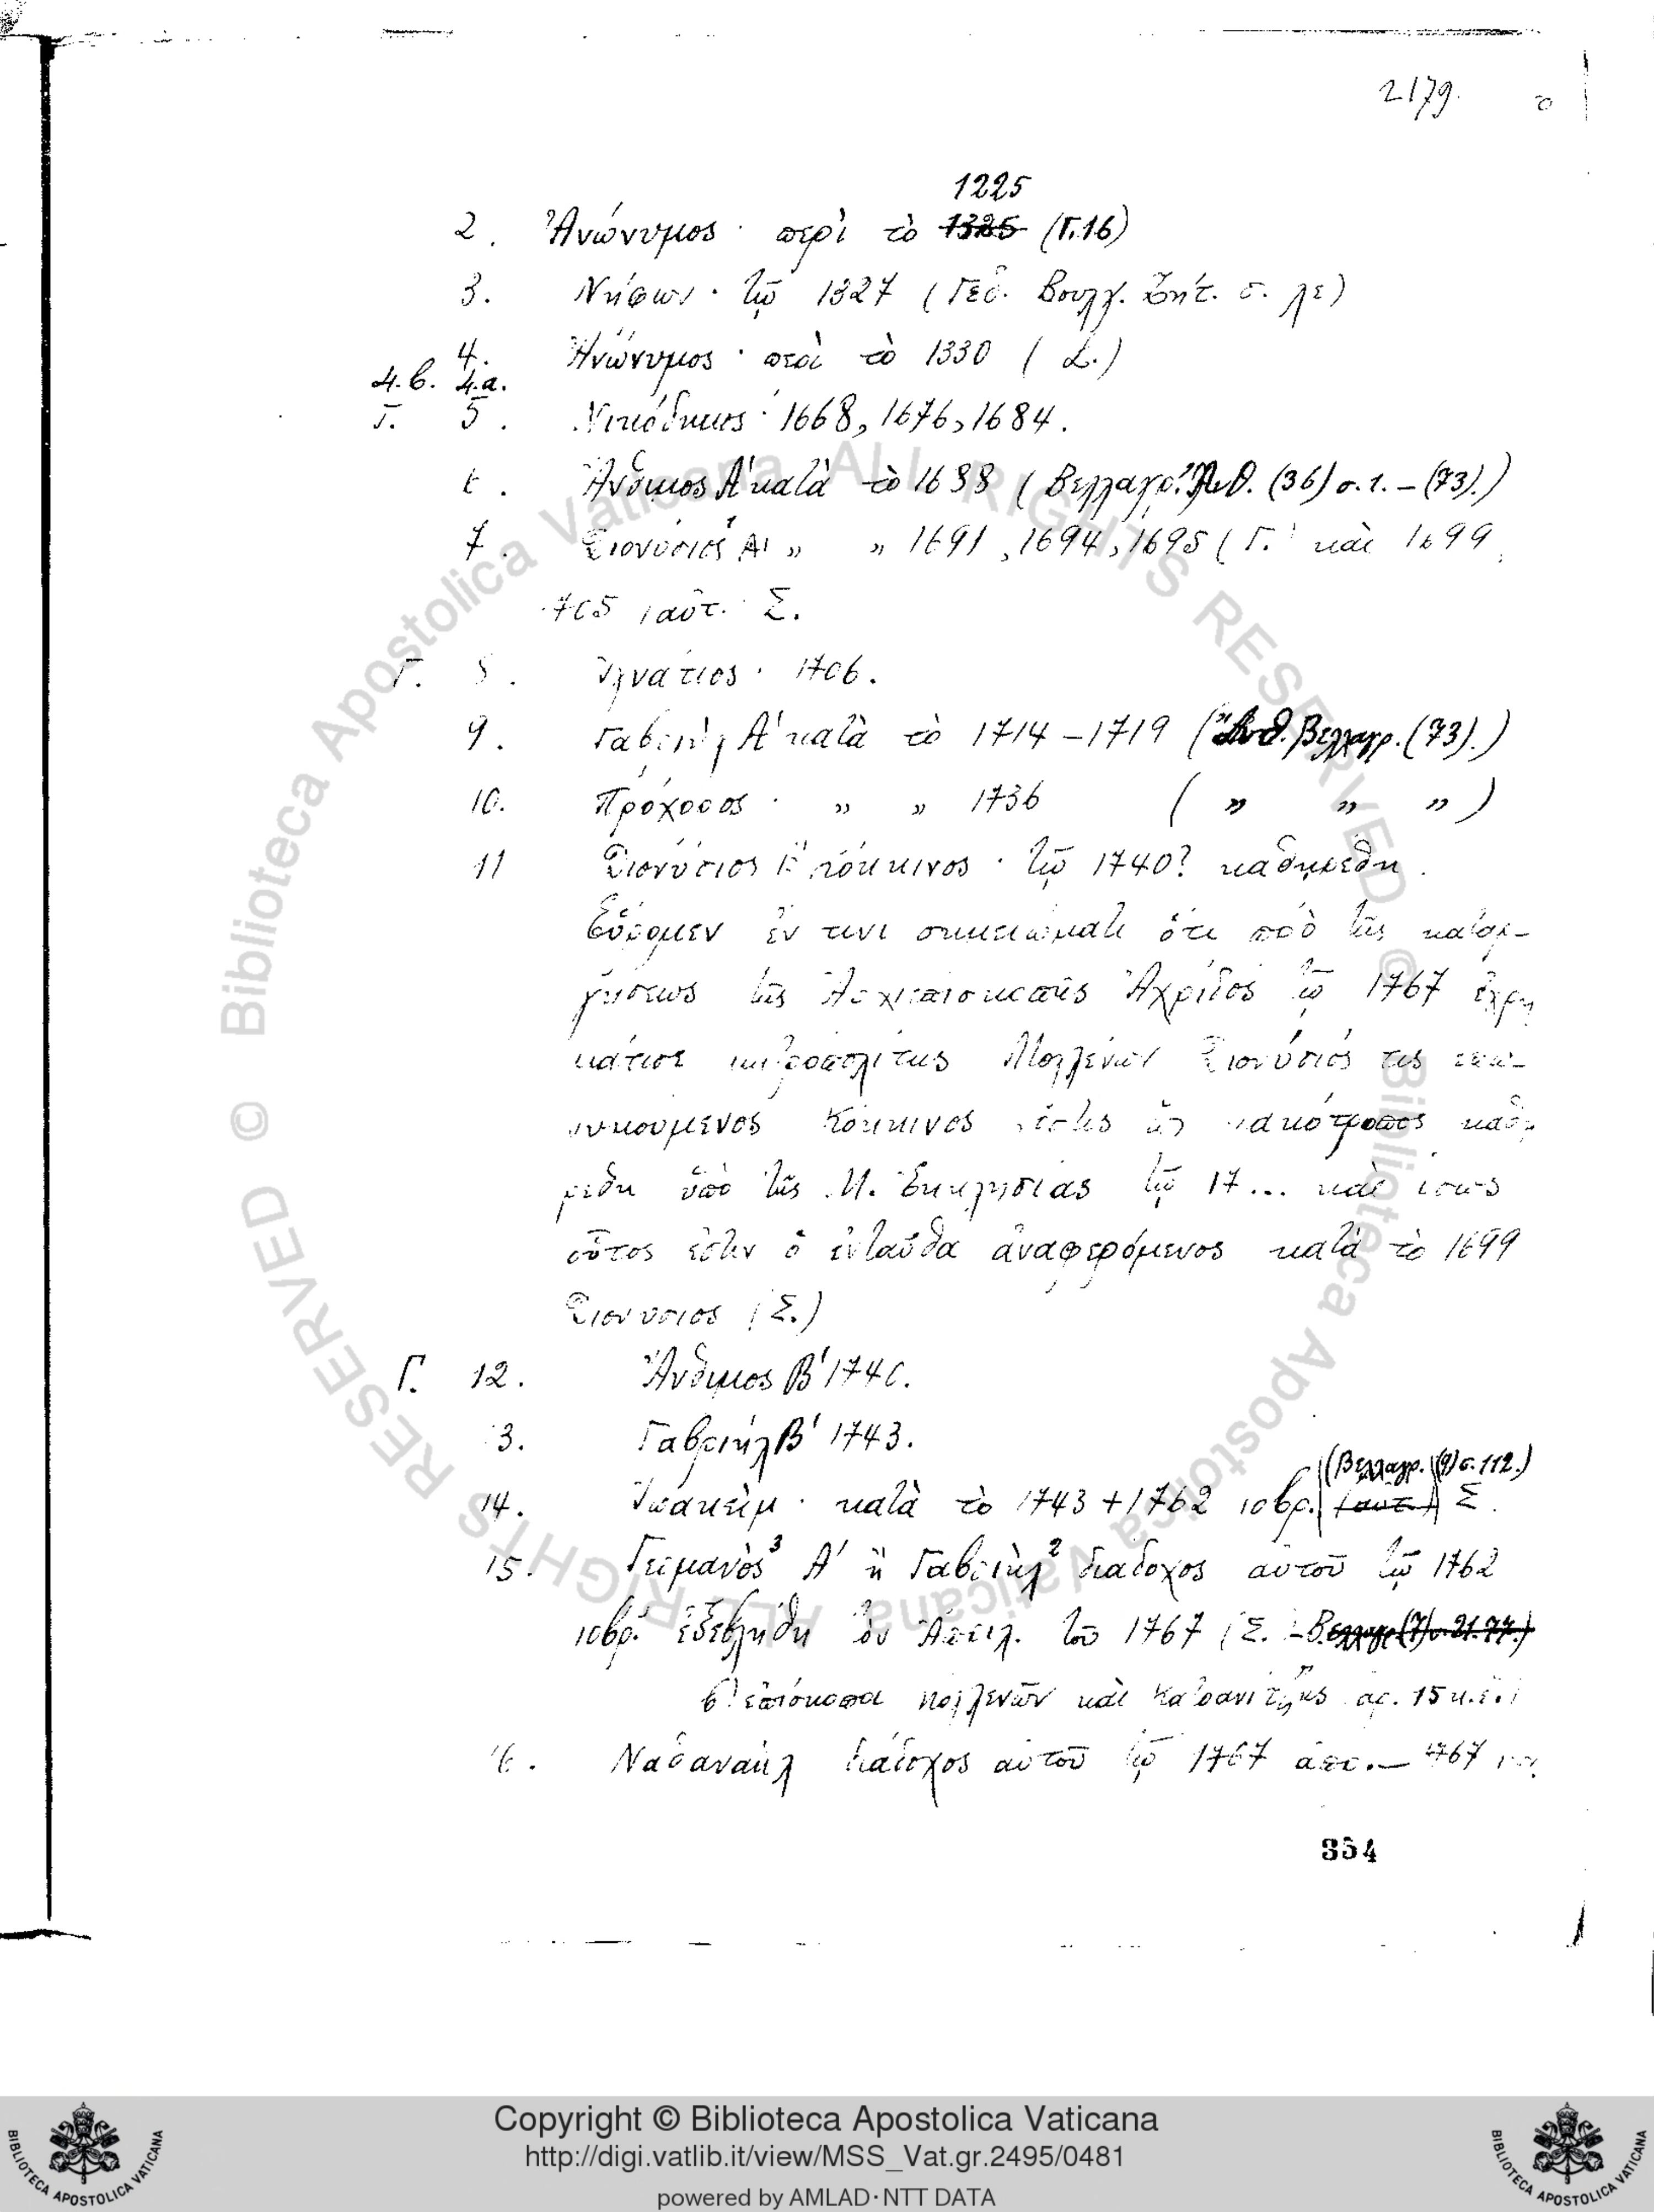 2179.
1225
2. Ἀνώνυμος · περὶ τὸ 1325 (Γ.16)
3. Νήφων · τῷ 1327 (Γεδ. Βουλγ. Ζήτ. σ. λε)
4. Ἀνώνυμος · περὶ τὸ 1330 (
4.β. 4.α.
Γ. 5. Νικόδημος · 1668, 1676, 1684.
Ἄνθιμος Α' κατὰ τὸ 1688 (Βελλαγρ. Ἀνθ. (36) σ. 1. – (73).)
7. Διονύσιος Α' „ „ 1691, 1694, 1695 (Γ. καὶ 1699
705 (αὐτ. Σ.
Γ. 8. Ἰγνάτιος · 1706.
9. Γαβριὴλ Α' κατὰ τὸ 1714–1719 (Ἀνθ. Βελλαγρ. (73).)
10. Πρόχορος · „ „ 1736 ( „ „ „ )
11 Διονύσιος Β' κόκκινος · τῷ 1740? καθῃρέθη.
Εὕρομεν ἔν τινι σημειώματι ὅτι πρὸ τῆς καταρ-
γήσεως τῆς Ἀρχιεπισκοπῆς Ἀχρίδος τῷ 1767 ἐχρη
μάτισε μητροπολίτης Μογλενῶν Διονύσιός τις ἐπω-
νυμούμενος Κόκκινος ὅστις ὡς κακότροπος καθῃ
ρέθη ὑπὸ τῆς Μ. Ἐκκλησίας τῷ 17... καὶ ἴσως
οὗτος ἐστὶν ὁ ἐνταῦθα ἀναφερόμενος κατὰ τὸ 1699
Διονύσιος (Σ.)
Γ. 12. Ἄνθιμος Β' 1740.
3. Γαβριήλ Β' 1743.
(Βελλαγρ. (9) σ. 112.)
14. Ἰωακεὶμ · κατὰ τὸ 1743 + 1762 10βρ. (αυτ.) Σ.
15. Γερμανὸς³ Α' ἢ Γαβριὴλ² διάδοχος αὐτοῦ τῷ 1762
10βρ. ἐξεβλήθη τὸν Ἀπρίλ. τοῦ 1767 (Σ. –
ἐπίσκοποι Μογλενῶν καὶ Κατρανίτζης ἀρ. 15 κ.ἑ.)
Ναθαναὴλ διάδοχος αὐτοῦ τῷ 1767 ἀπρ. – 1767
354
Copyright © Biblioteca Apostolica Vaticana
http://digi.vatlib.it/view/MSS_Vat.gr.2495/0481
powered by AMLAD·NTT DATA
BIBLIOTECA APOSTOLICA VATICANA
BIBLIOTECA APOSTOLICA VATICANA
© Biblioteca Apostolica Vaticana ALL RIGHTS RESERVED © Biblioteca Apostolica Vaticana ALL RIGHTS RESERVED